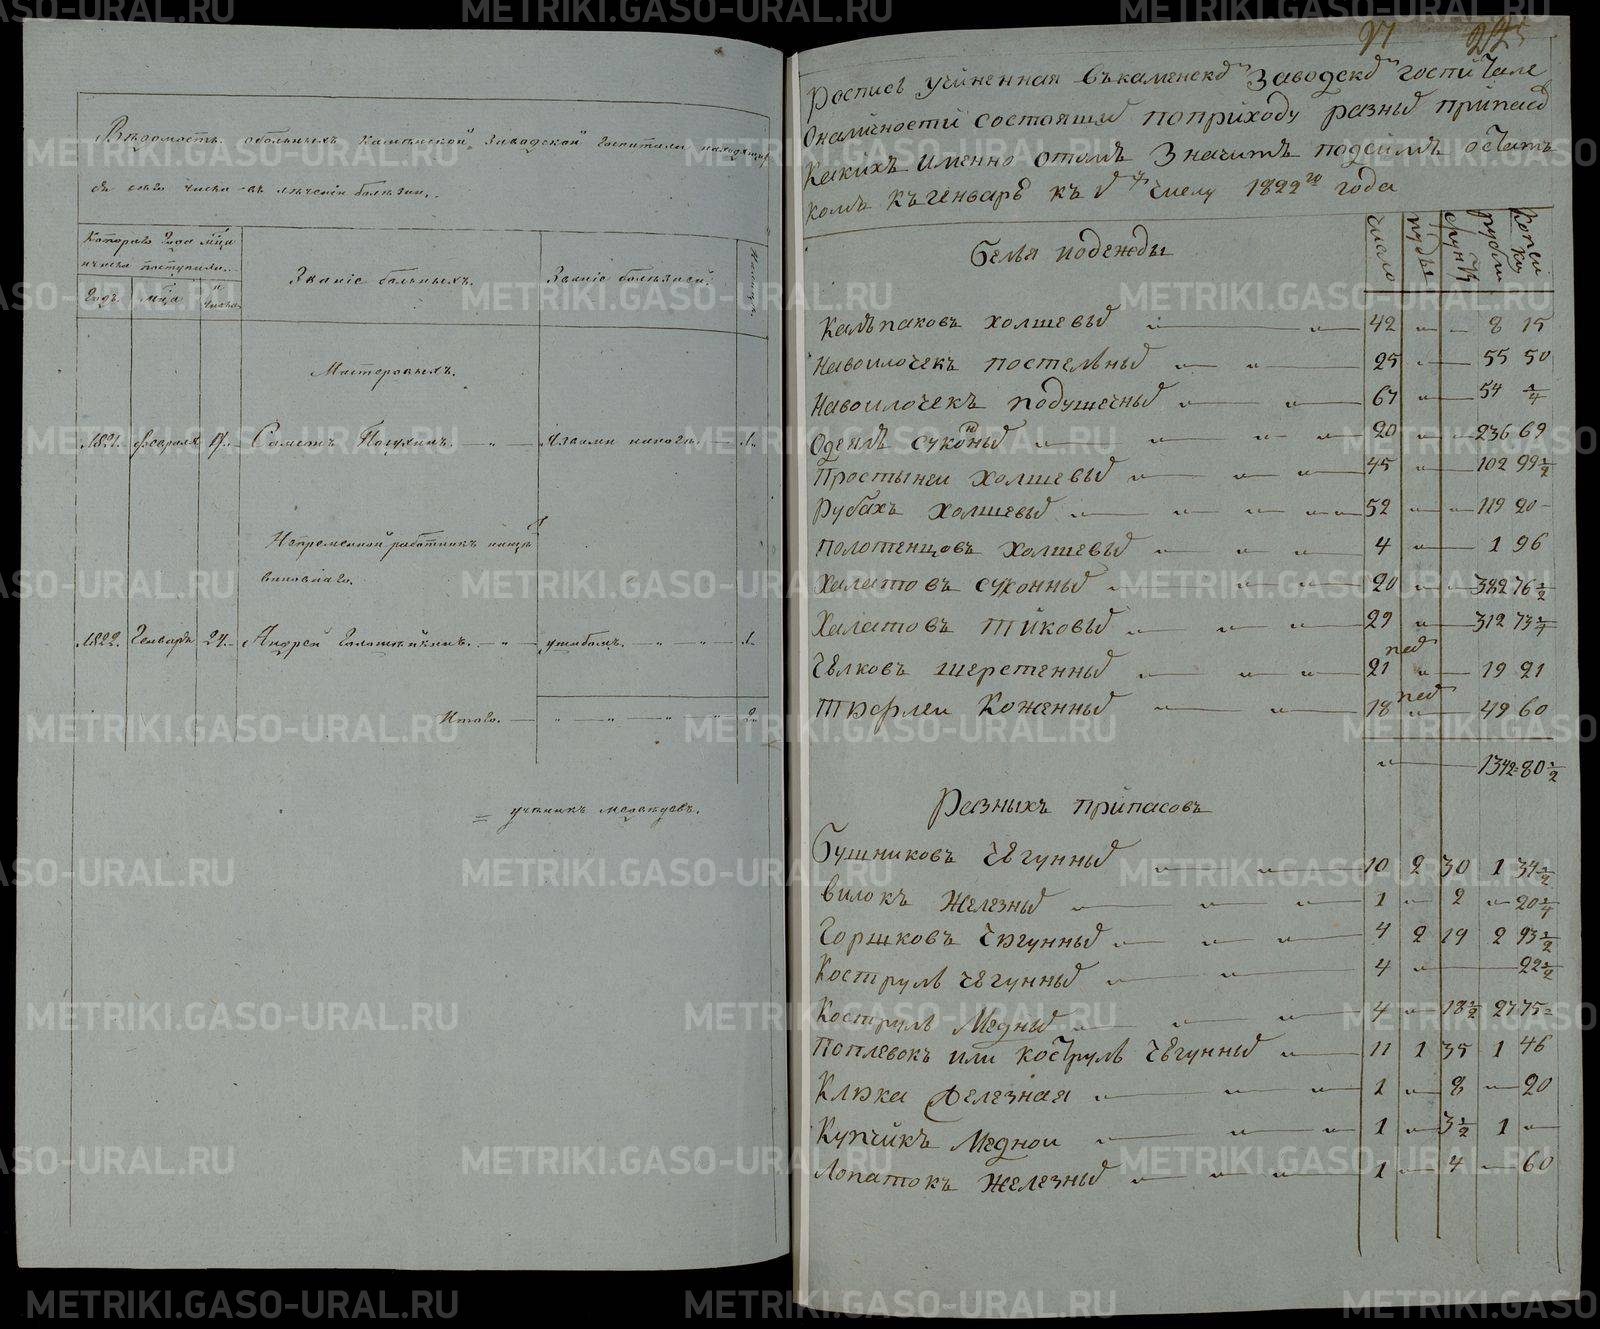 Ведомость обольныхъ Каменской Заводской Госпитали находящих
ся сего числа въ лѣченіи болезни.
Котораго Года мца
и числа поступили.
Годъ. мца и числа.
Званіе больныхъ.
Званіе болезней.
Мастеровыхъ.
1821. февраля 17. Самсонъ Полухинъ. — язвами на ноге. — 1.
Непременной работникъ
1822. Генваря 24. Андрей — ушибомъ. — 1.
Итого. — 2.
ученикъ
27 225
Роспись учиненная въ каменской Заводской госпитале
О наличности состоящих по приходу разных припасов
Каких именно о том Значит под сим остат
ком къ Генварь къ 1 числу 1822го года
число пуды фунты рубли копейки
Белья и одежды
Калпаковъ холшевых 42 8 15
Наволочекъ постельных 25 55 50
Наволочекъ подушечных 67 54 1/4
Одеялъ суконных 20 236 69
Простыней холшевых 45 102 99 1/2
Рубахъ холшевых 52 119 20
Полотенцовъ холшевых 4 1 96
Халатовъ суконных 20 382 76 1/2
Халатовъ тиковых 29 312 73 1/4
Чулковъ шерстенных 21 19 21
Тюфлей Коженных 18 49 60
1342 80 1/2
Разныхъ припасовъ
Бушниковъ Чюгунных 10 2 30 1 34 1/2
Вилокъ Железных 1 2 20 1/4
Горшковъ Чюгунных 4 2 19 2 93 1/2
Кострулъ чюгунных 4 22 1/2
Кострулъ Медных 4 18 1/2 27 75
Поплевокъ или кострулъ Чюгунных 11 1 35 1 46
Клюка Железная 1 8 20
Купчикъ Медной 1 3 1/2 1
Лопатокъ Железных 1 4 60
METRIKI.GASO-URAL.RU